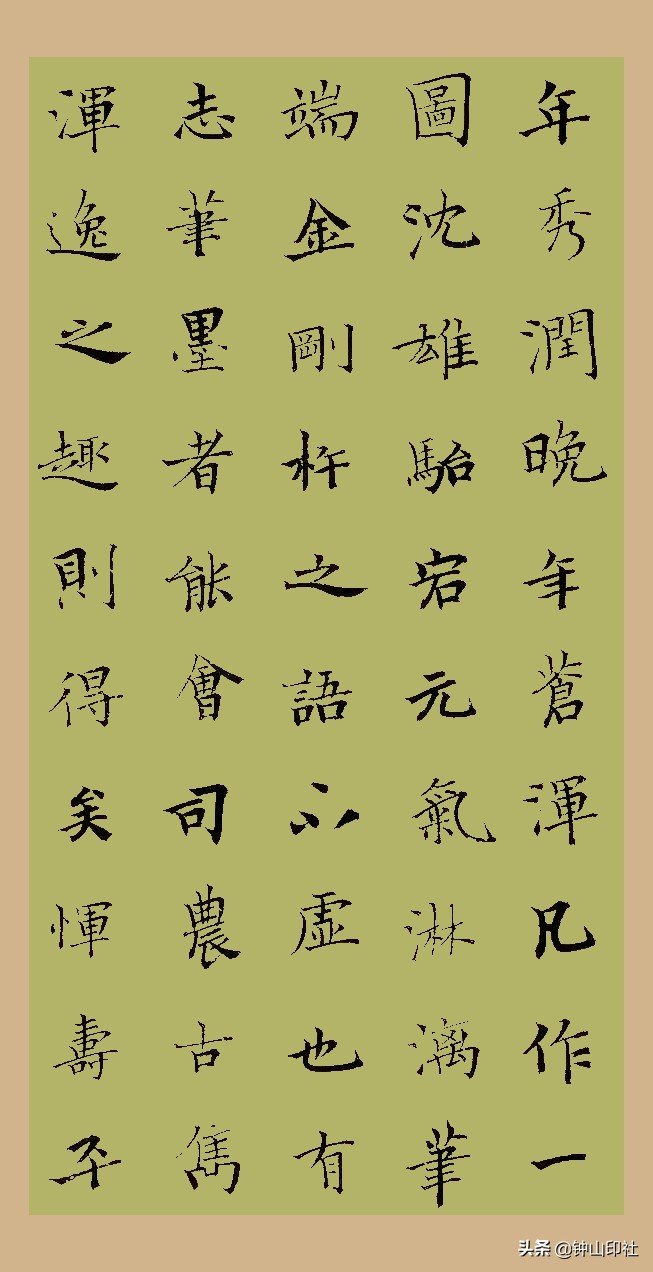 年秀潤晚年蒼渾凡作一
圖沈雄駘宕元氣淋漓筆
端金剛杵之語不虛也有
志筆墨者能會司農古雋
渾逸之趣則得矣惲壽平
头条 @钟山印社